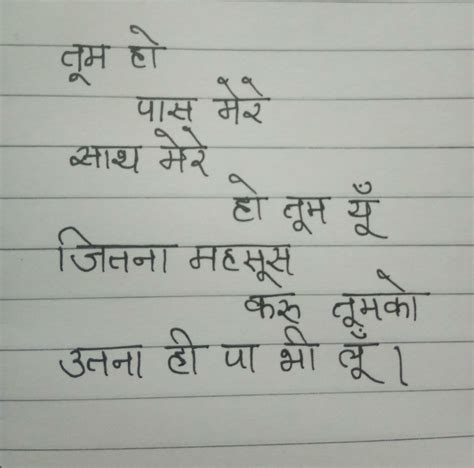 तूम हो
पास मेरे
साथ मेरे
हो तूम यूँ
जितना महसूस
करू तूमको
उतना ही पा भी लूँ।